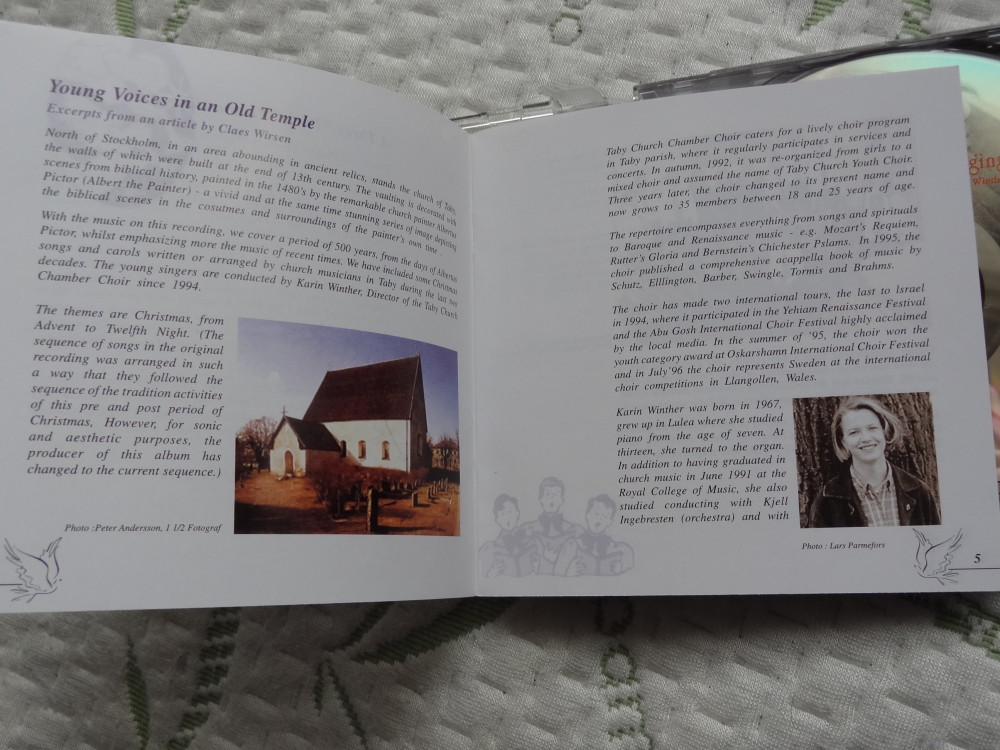 Young Voices in an Old Temple
Excerpts from an article by Claes Wirsen
North of Stockholm, in an area abounding in ancient relics, stands the church of Taby,
the walls of which were built at the end of 13th century. The vaulting is decorated with
scenes from biblical history, painted in the 1480's by the remarkable church painter Albertus
Pictor (Albert the Painter) - a vivid and at the same time stunning series of image depicting
the biblical scenes in the cosutmes and surroundings of the painter's own time .
With the music on this recording, we cover a period of 500 years, from the days of Albertus
Pictor, whilst emphasizing more the music of recent times. We have included some Christmas
songs and carols written or arranged by church musicians in Taby during the last two
decades. The young singers are conducted by Karin Winther, Director of the Taby Church
Chamber Choir since 1994.
The themes are Christmas, from
Advent to Twelfth Night. (The
sequence of songs in the original
recording was arranged in such
a way that they followed the
sequence of the tradition activities
of this pre and post period of
Christmas, However, for sonic
and aesthetic purposes, the
producer of this album has
changed to the current sequence.)
Photo :Peter Andersson, 1 1/2 Fotograf
Taby Church Chamber Choir caters for a lively choir program
in Taby parish, where it regularly participates in services and
concerts. In autumn, 1992, it was re-organized from girls to a
mixed choir and assumed the name of Taby Church Youth Choir.
Three years later, the choir changed to its present name and
now grows to 35 members between 18 and 25 years of age.
The repertoire encompasses everything from songs and spirituals
to Baroque and Renaissance music - e.g. Mozart's Requiem,
Rutter's Gloria and Bernstein's Chichester Pslams. In 1995, the
choir published a comprehensive acappella book of music by
Schutz, Elllington, Barber, Swingle, Tormis and Brahms.
The choir has made two international tours, the last to Israel
in 1994, where it participated in the Yehiam Renaissance Festival
and the Abu Gosh International Choir Festival highly acclaimed
by the local media. In the summer of '95, the choir won the
youth category award at Oskarshamn International Choir Festival
and in July'96 the choir represents Sweden at the international
choir competitions in Llangollen, Wales.
Karin Winther was born in 1967,
grew up in Lulea where she studied
piano from the age of seven. At
thirteen, she turned to the organ.
In addition to having graduated in
church music in June 1991 at the
Royal College of Music, she also
studied conducting with Kjell
Ingebresten (orchestra) and with
Photo : Lars Parmefors
5